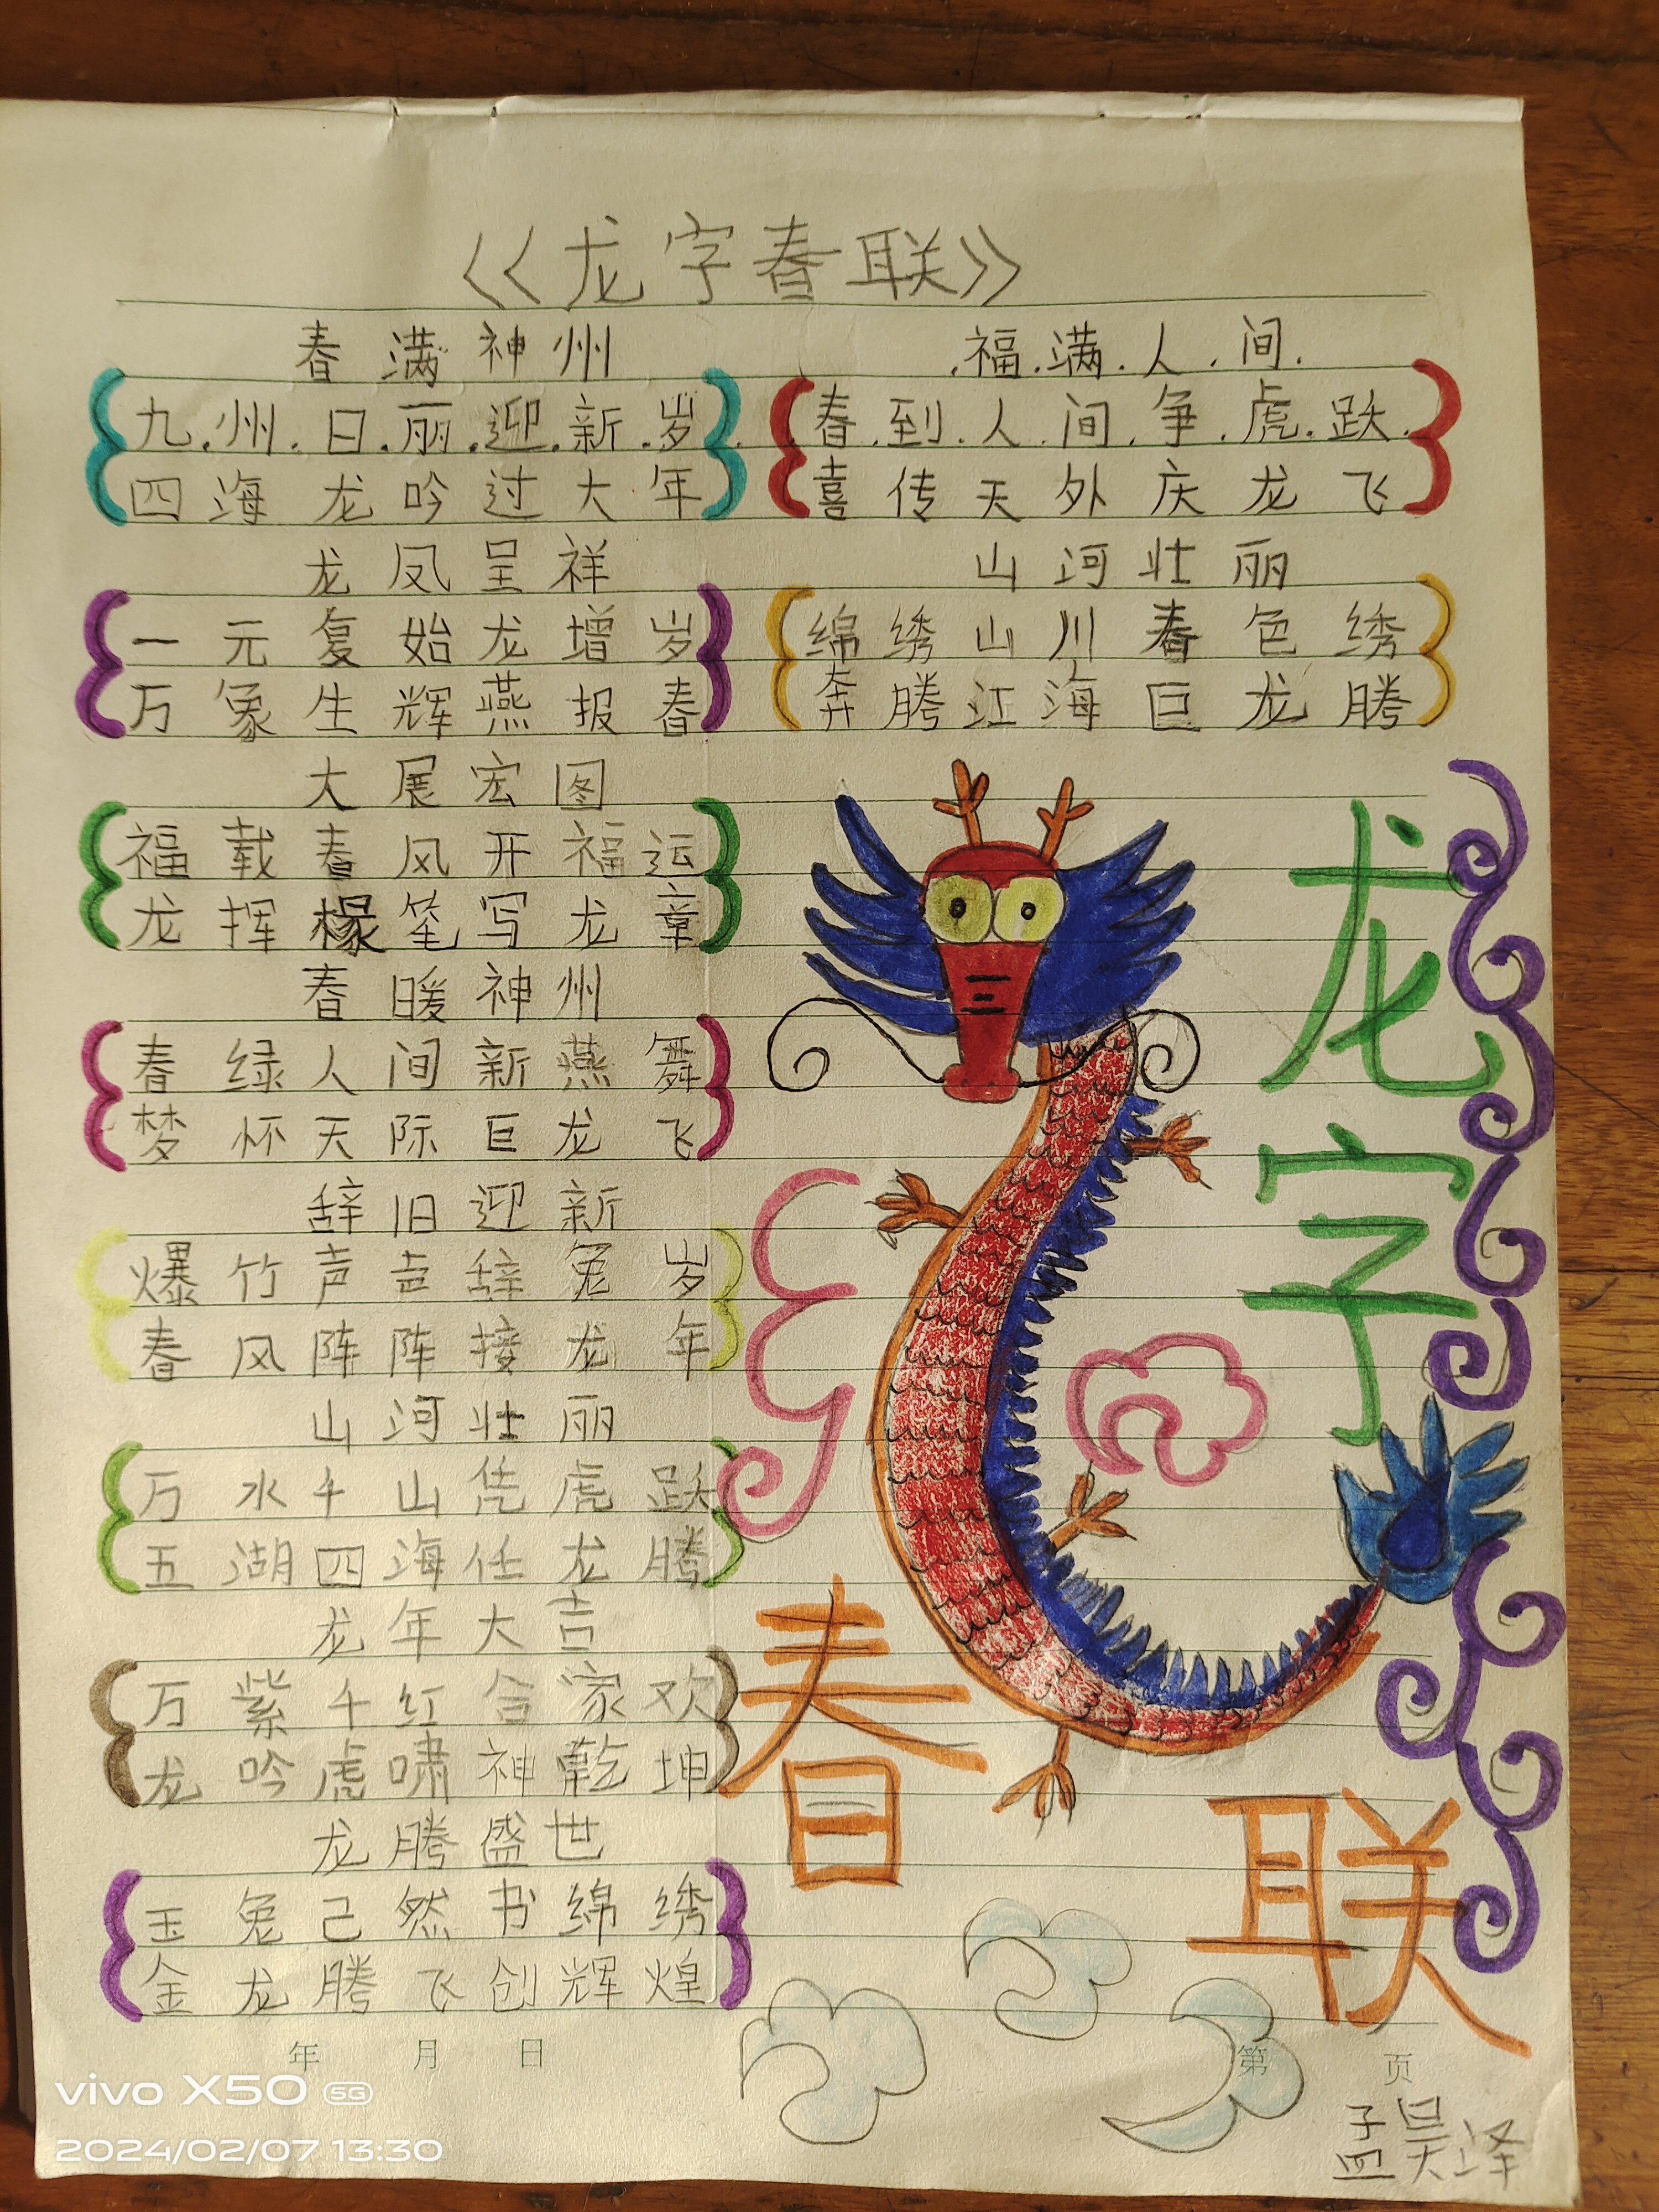 《龙字春联》
春满神州
九.州.日.丽.迎.新.岁
四海龙吟过大年
龙凤呈祥
一元复始龙增岁
万象生辉燕报春
大展宏图
福载春风开福运
龙挥椽笔写龙章
春暖神州
春绿人间新燕舞
梦怀天际巨龙飞
辞旧迎新
爆竹声声辞兔岁
春风阵阵接龙年
山河壮丽
万水千山凭虎跃
五湖四海任龙腾
龙年大吉
万紫千红合家欢
龙吟虎啸神乾坤
龙腾盛世
玉兔己然书绵绣
金龙腾飞创辉煌
.福.满.人.间.
春.到.人.间.争.虎.跃.
喜传天外庆龙飞
山河壮丽
绵绣山川春色绣
奔腾江海巨龙腾
龙字
春联
年 月 日
第 页
孟昊泽
vivo X50 5G
2024/02/07 13:30